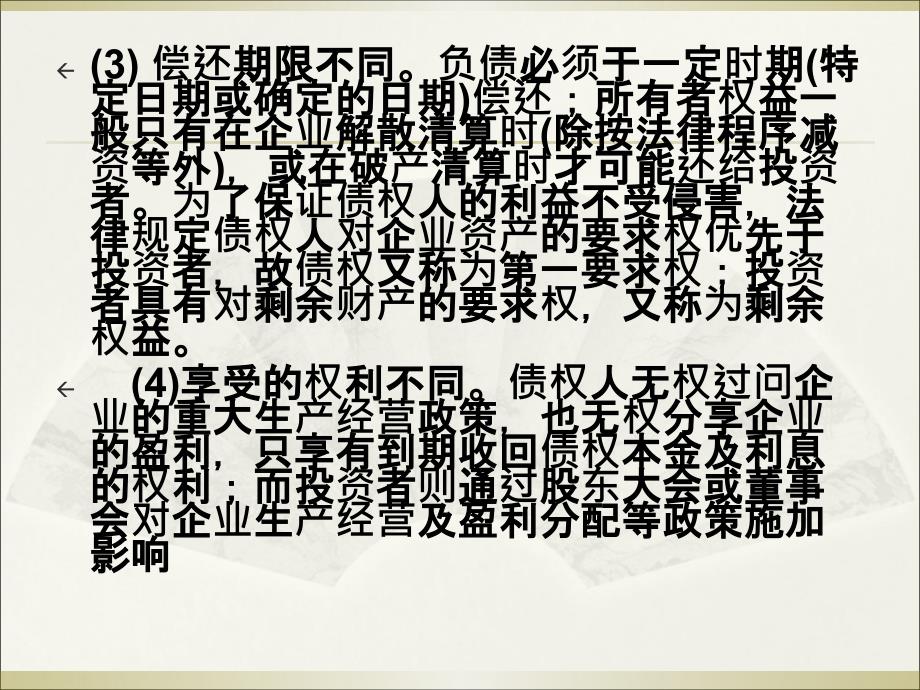 (3) 偿还期限不同。负债必须于一定时期(特
定日期或确定的日期)偿还；所有者权益一
般只有在企业解散清算时(除按法律程序减
资等外)，或在破产清算时才可能还给投资
者。为了保证债权人的利益不受侵害，法
律规定债权人对企业资产的要求权优先于
投资者，故债权又称为第一要求权；投资
者具有对剩余财产的要求权，又称为剩余
权益。
(4)享受的权利不同。债权人无权过问企
业的重大生产经营政策，也无权分享企业
的盈利，只享有到期收回债权本金及利息
的权利；而投资者则通过股东大会或董事
会对企业生产经营及盈利分配等政策施加
影响